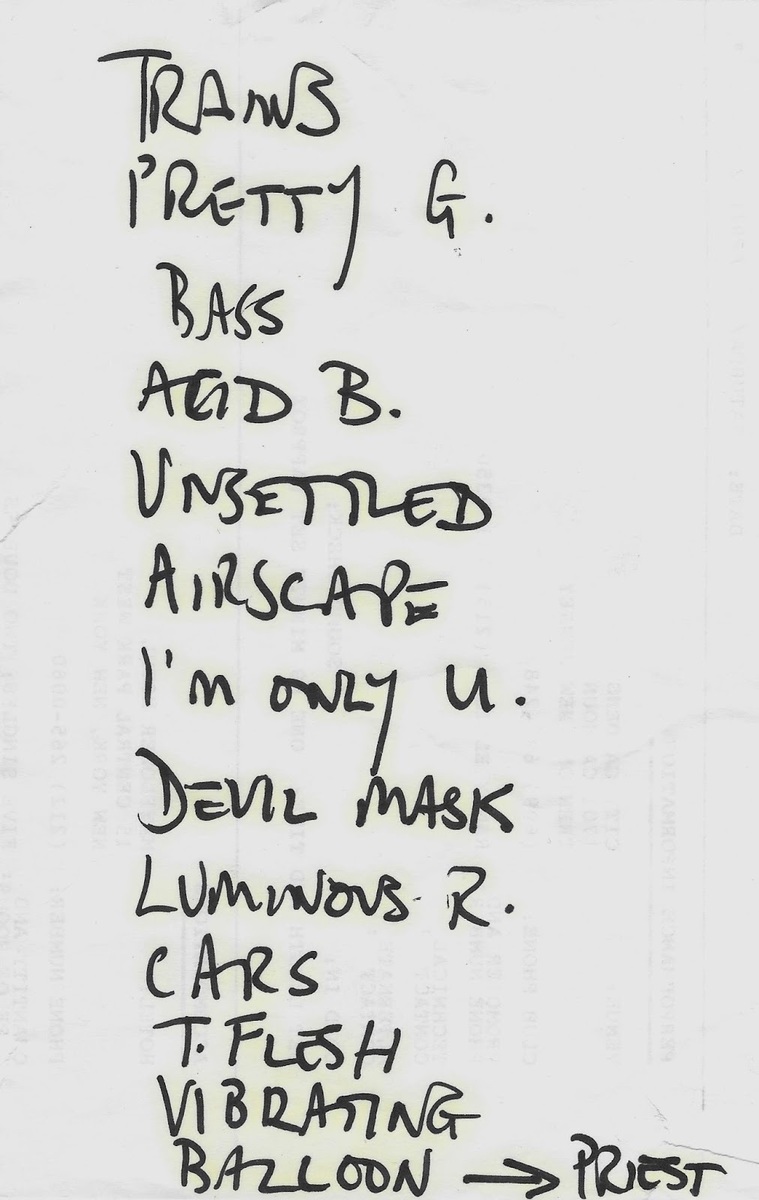 TRAINS
PRETTY G.
BASS
ACID B.
UNSETTLED
AIRSCAPE
I'm ONLY U.
DEVIL MASK
LUMINOUS R.
CARS
T. FLESH
VIBRATING
BALLOON → PRIEST